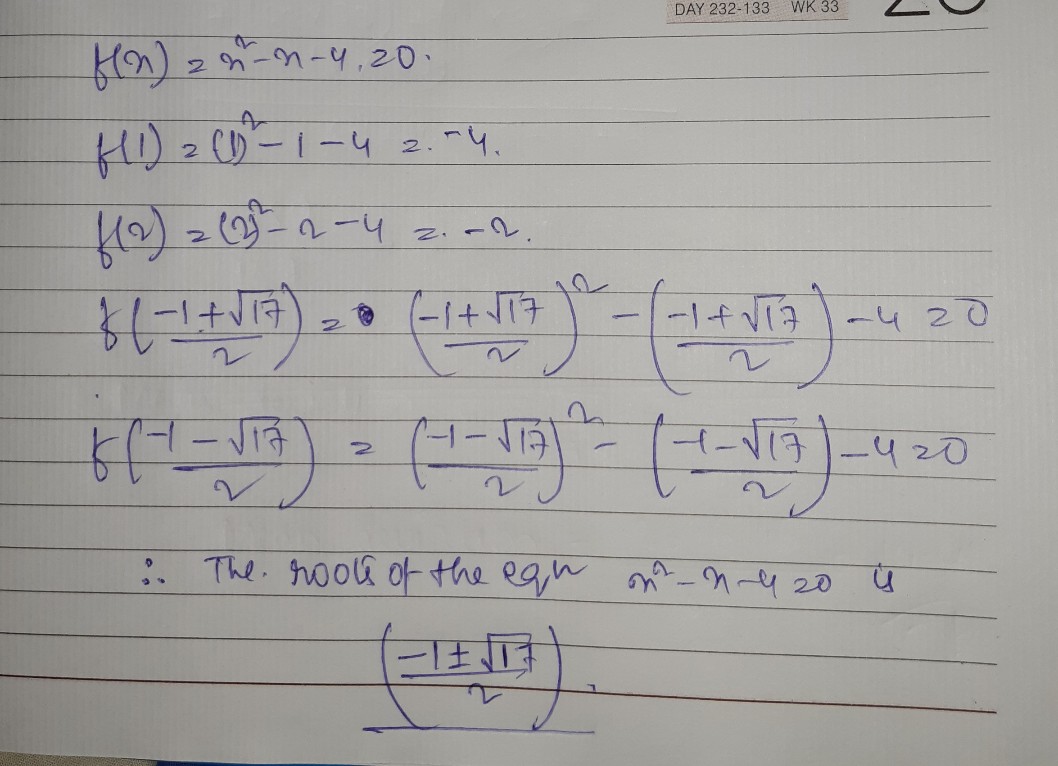 DAY 232-133 WK 33
f(x) = x² - x - 4 = 0.
f(1) = (1)² - 1 - 4 = -4.
f(2) = (2)² - 2 - 4 = -2.
f((-1+√17)/2) = ((-1+√17)/2)² - ((-1+√17)/2) - 4 = 0
f((-1-√17)/2) = ((-1-√17)/2)² - ((-1-√17)/2) - 4 = 0
∴ The. roots of the eqn x² - x - 4 = 0 is
((-1±√17)/2).